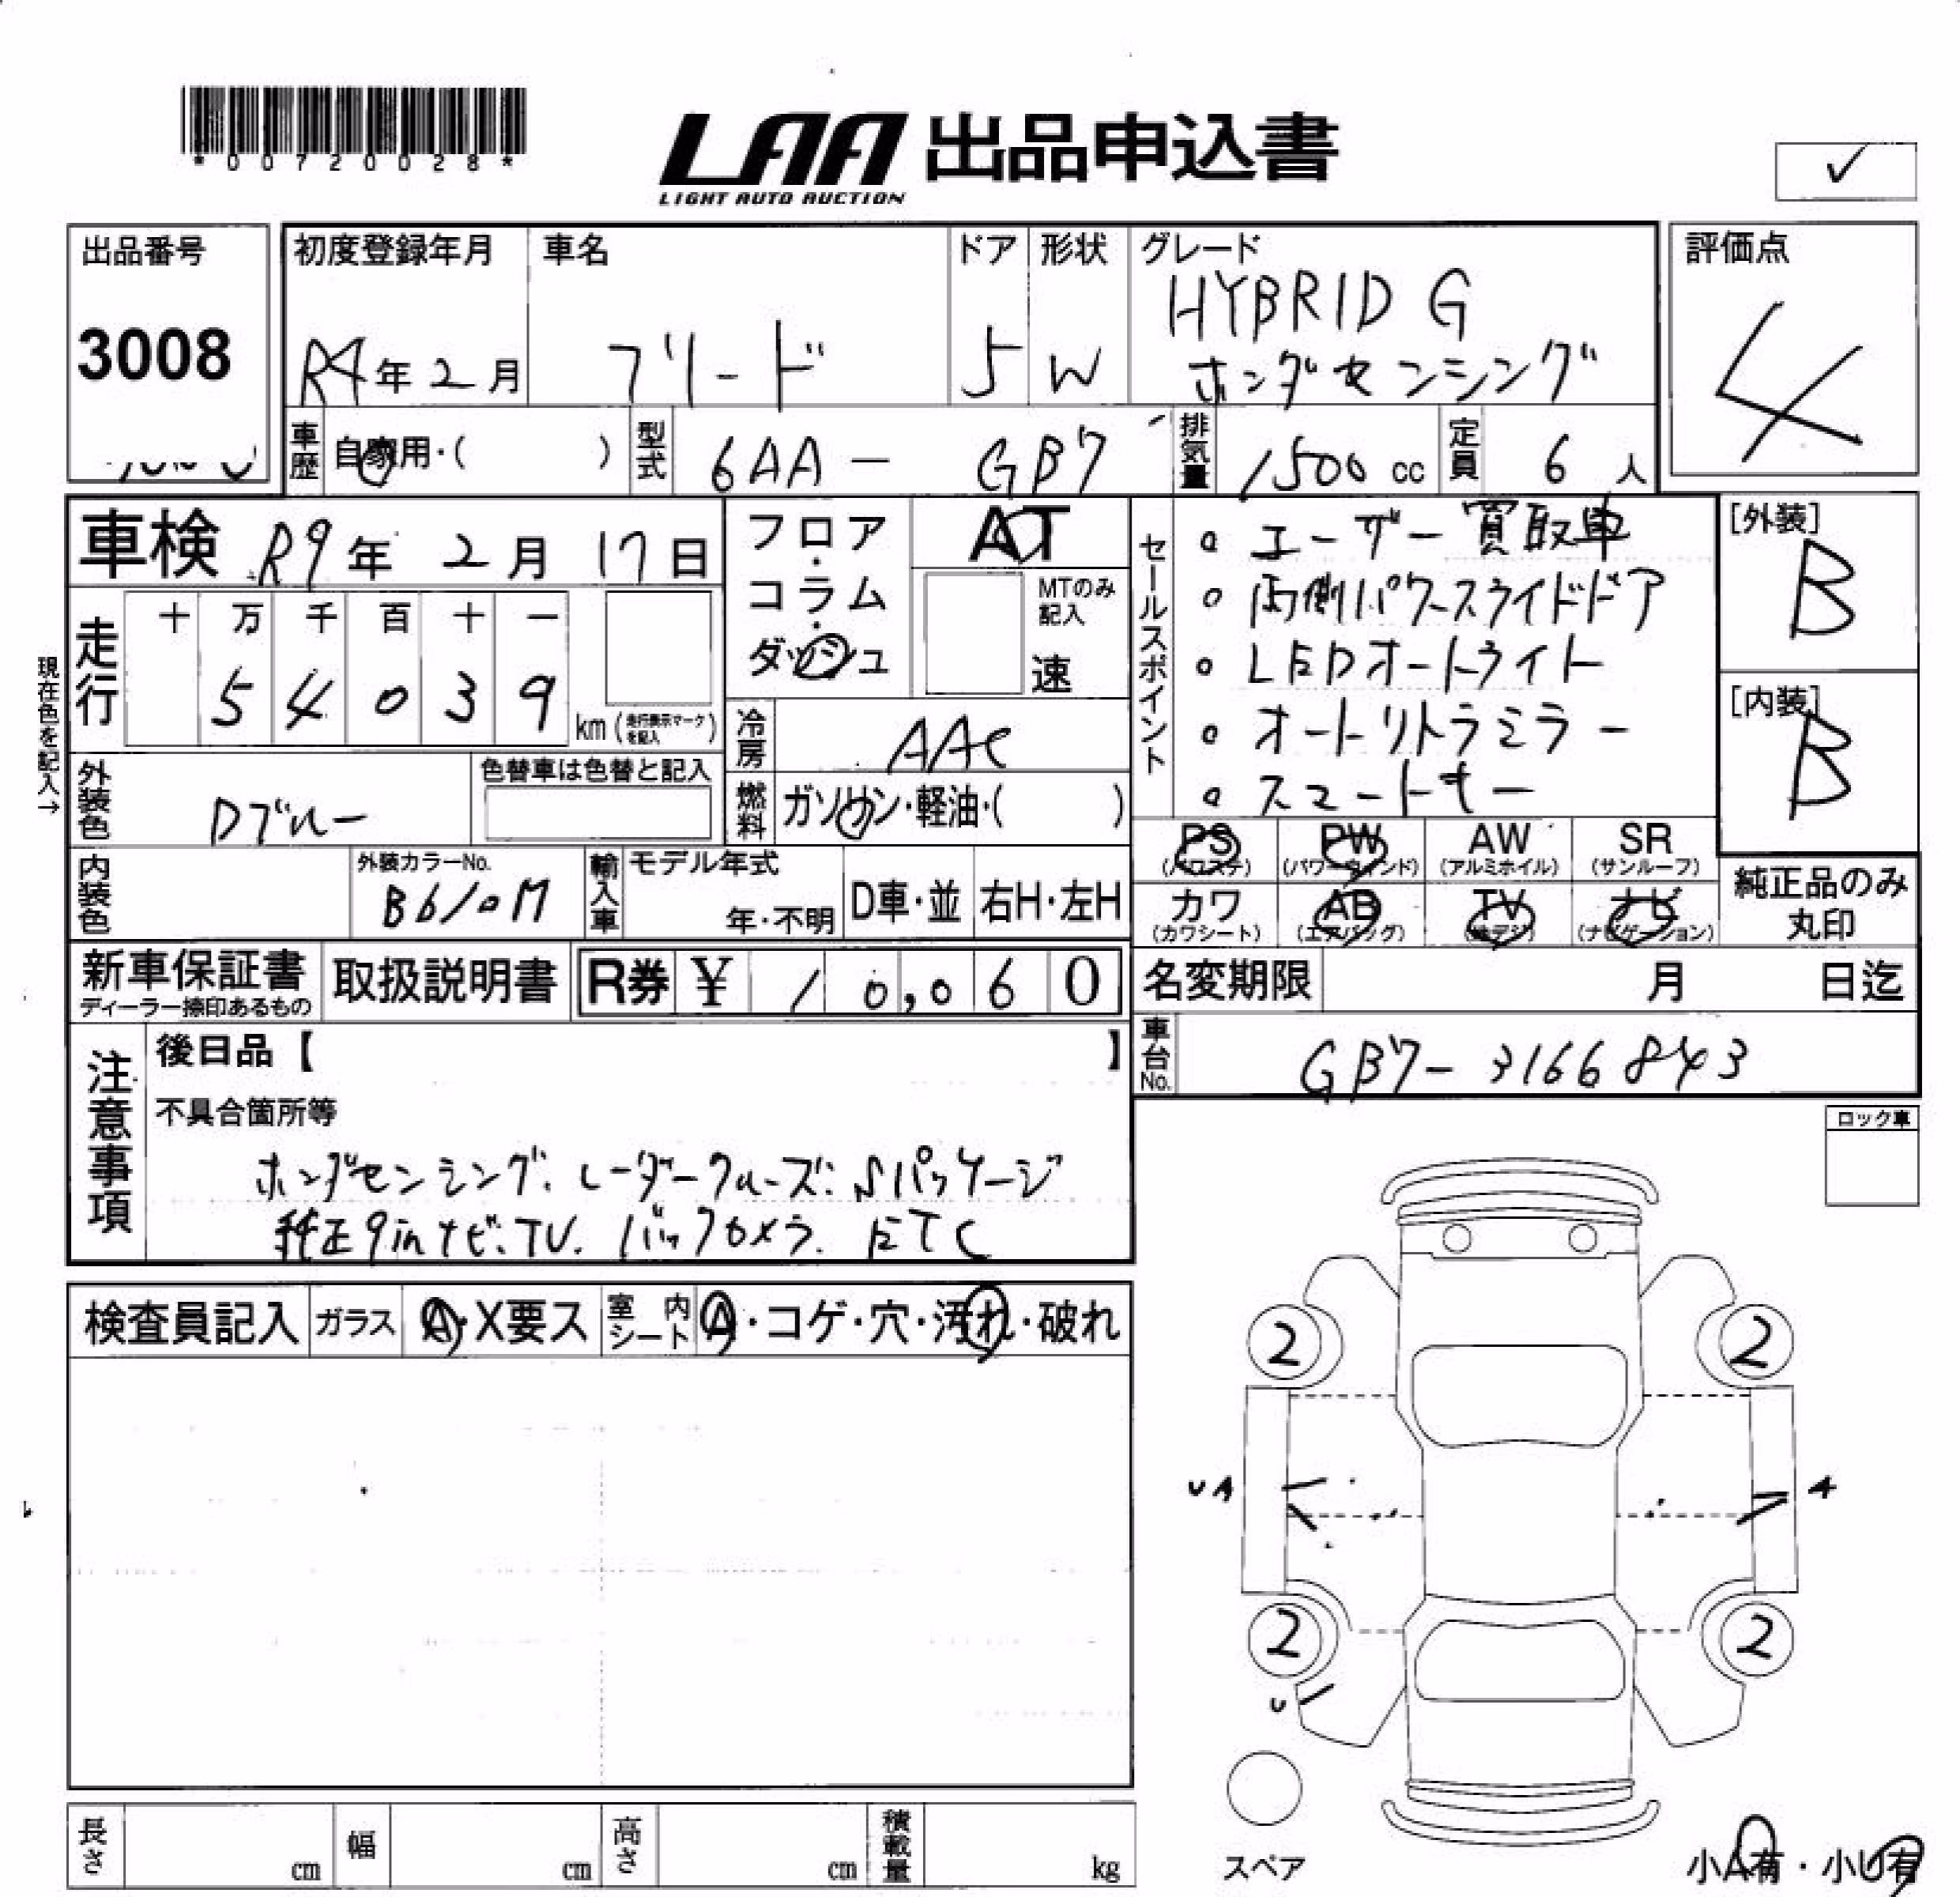 *00720028*
LAA 出品申込書
LIGHT AUTO AUCTION
✓
出品番号
3008
初度登録年月
R4年2月
車名
フリード
ドア
5
形状
W
グレード
HYBRID G
ホンダセンシング
評価点
4
車歴 自家用・( )
型式 6AA - GB7
排気量 1500 cc
定員 6 人
車検 R9年2月17日
走行
十 万 千 百 十 一
5 4 0 3 9
km (走行表示マークを記入)
現在色を記入→
フロア・コラム・ダッシュ
AT
MTのみ記入
速
冷房 AAC
燃料 ガソリン・軽油・( )
セールスポイント
。ユーザー買取車
。両側パワースライドドア
。LEDオートライト
。オートリトラミラー
。スマートキー
[外装]
B
[内装]
B
外装色 Dブルー
色替車は色替と記入
内装色
外装カラーNo.
B610M
輸入車
モデル年式
年・不明
D車・並
右H・左H
PS
(パワステ)
PW
(パワーウィンド)
AW
(アルミホイル)
SR
(サンルーフ)
カワ
(カワシート)
AB
(エアバッグ)
TV
(地デジ)
ナビ
(ナビゲーション)
純正品のみ
丸印
新車保証書
ディーラー捺印あるもの
取扱説明書
R券 ¥ 10,060
名変期限 月 日迄
車台No. GB7-3166843
注意事項
後日品【 】
不具合箇所等
ホンダセンシング. レーダークルーズ. Sパッケージ
純正9inナビ. TV. バックカメラ. ETC
ロック車
検査員記入
ガラス A・X要ス
室内シート A・コゲ・穴・汚れ・破れ
2 2
UA A
2 2
U
スペア
小A有・小U有
長さ cm
幅 cm
高さ cm
積載量 kg